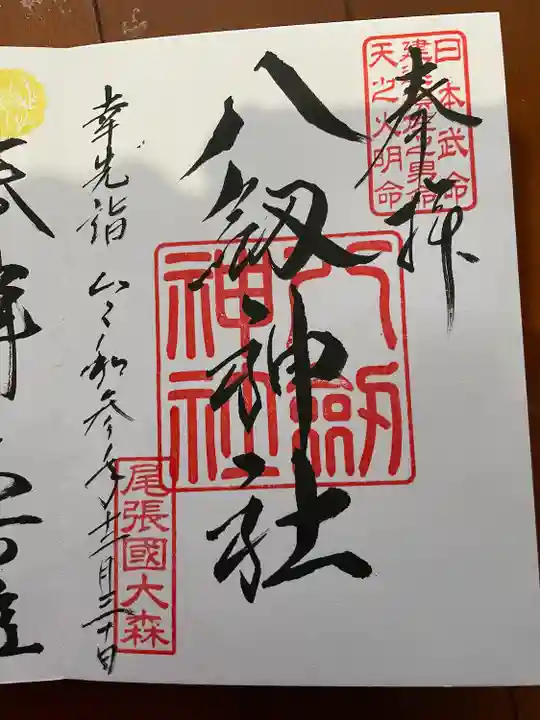 奉拝
日本武命
天之火明命
八剱神社
八劔
神社
幸先詣 令和参年十二月三十日
尾張國大森